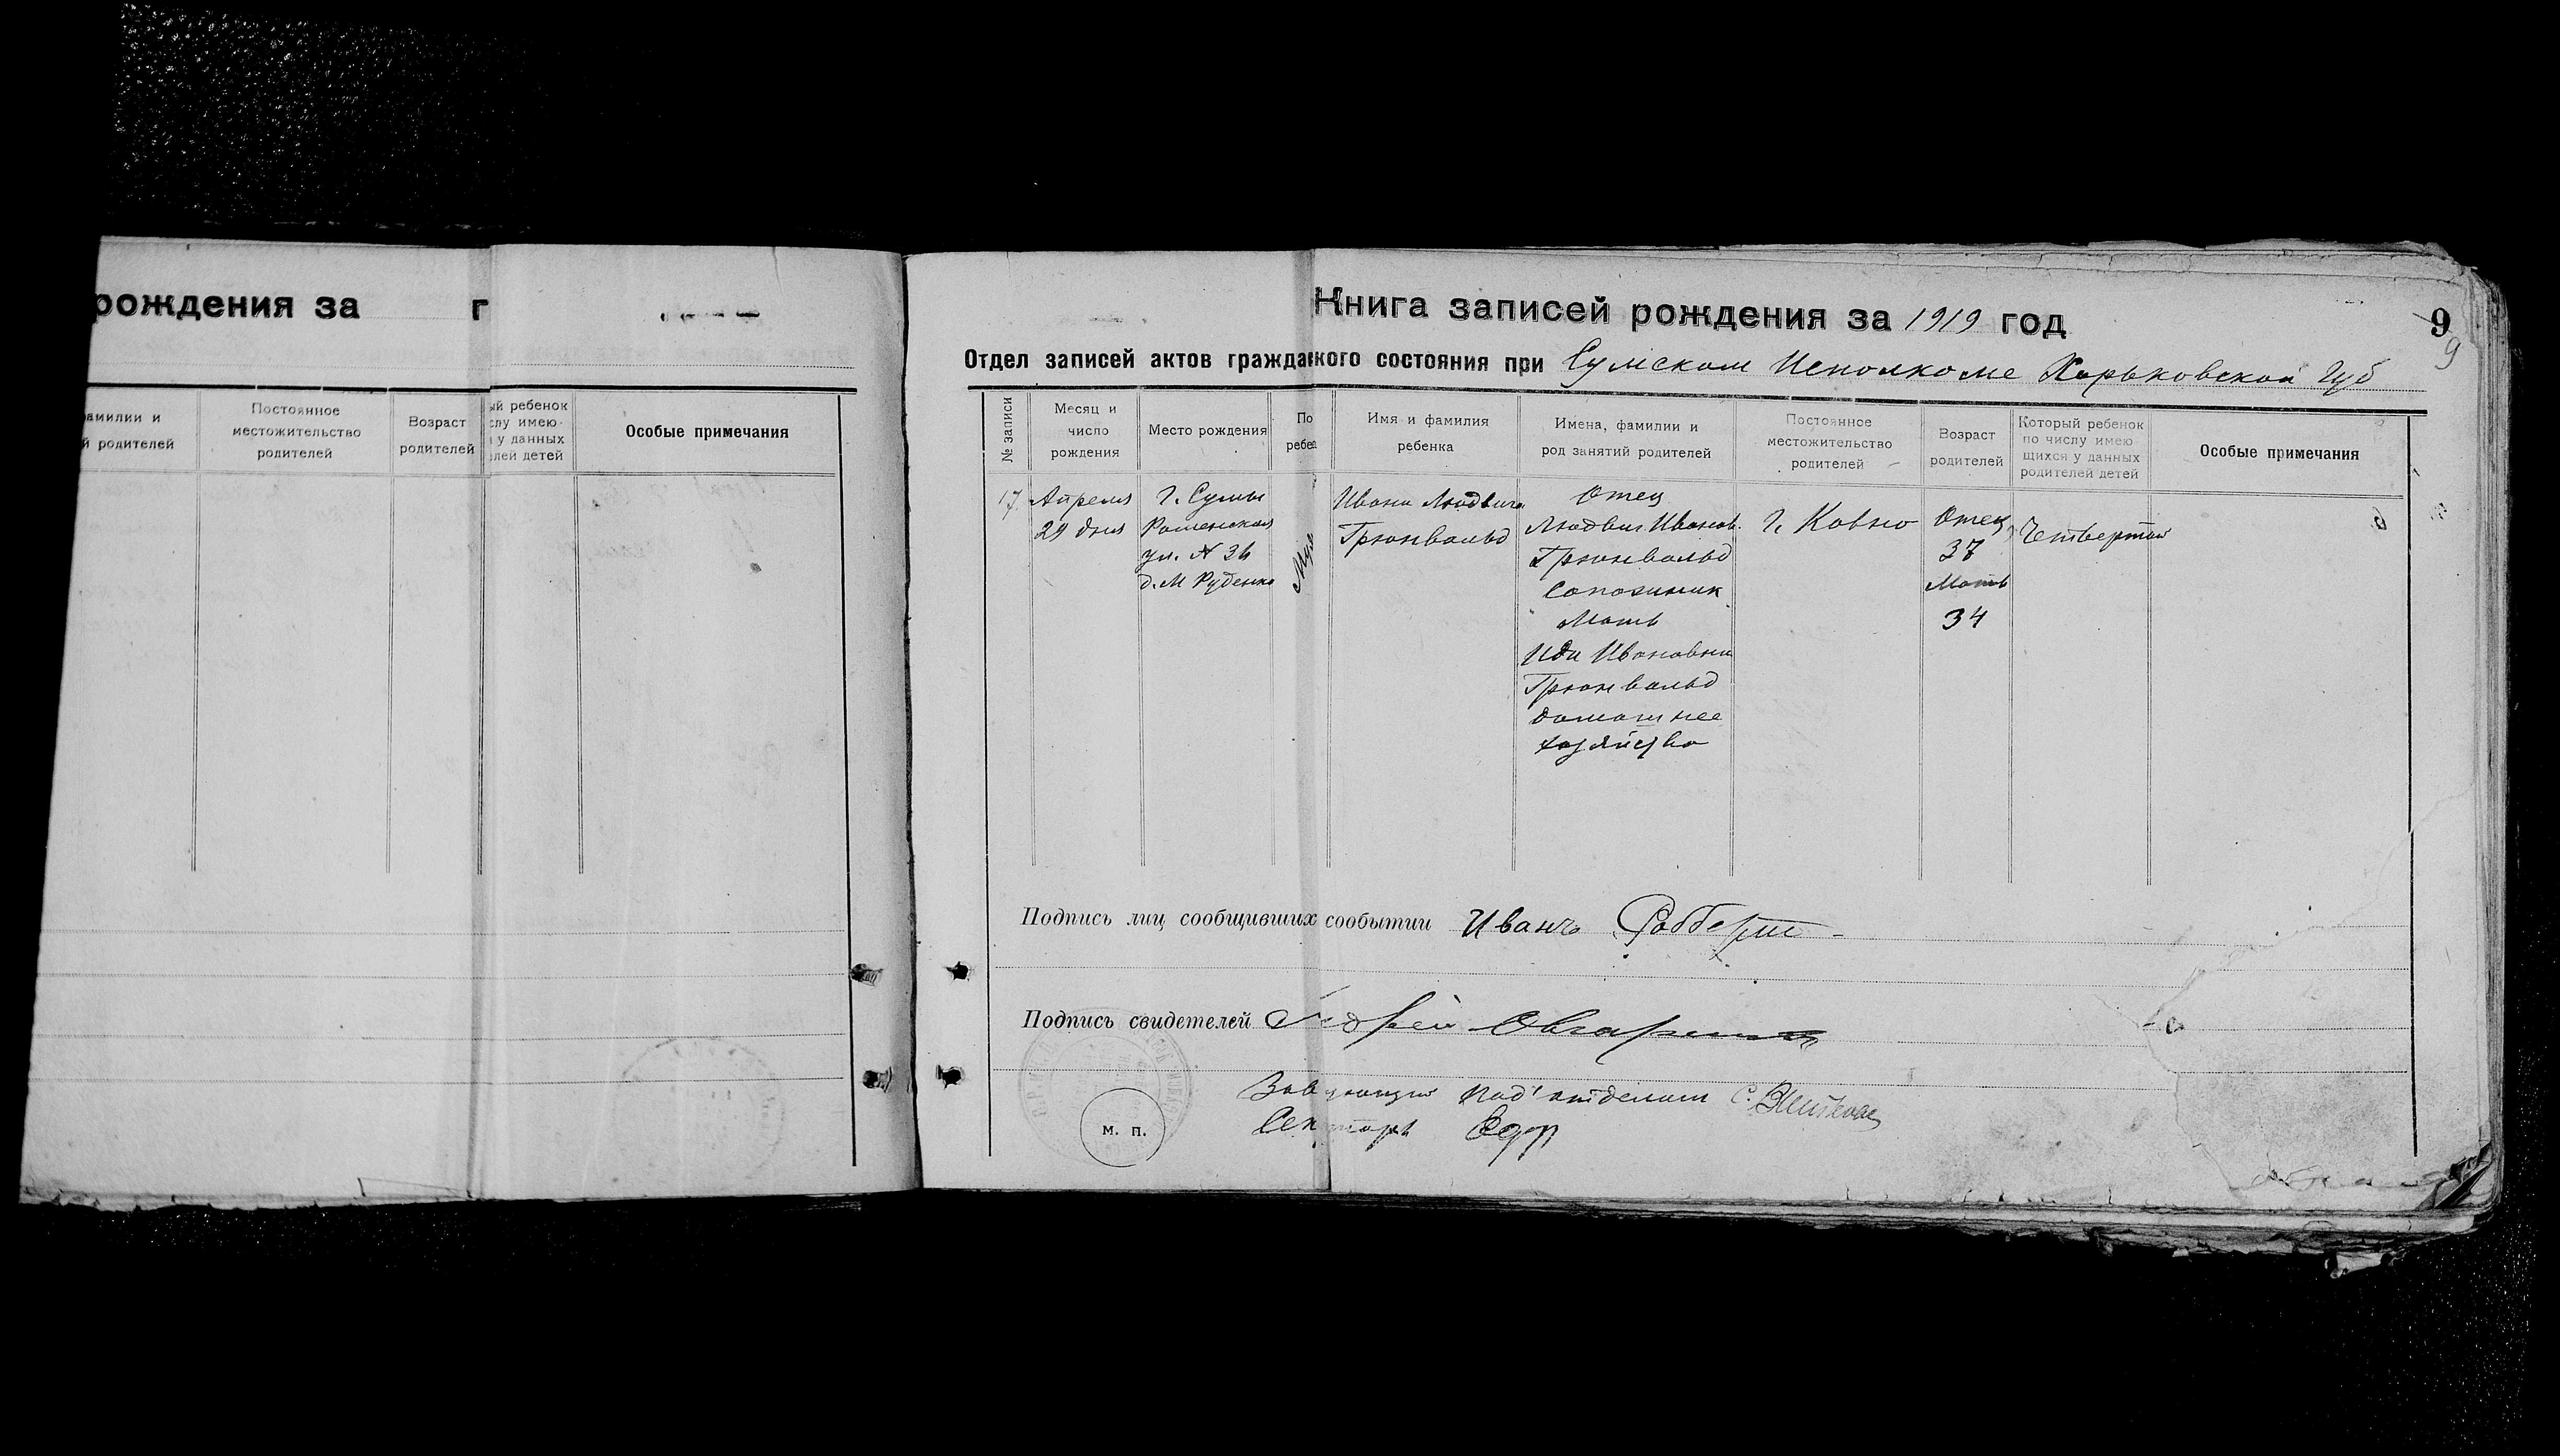 рождения за г
амилии и
й родителей
Постоянное
местожительство
родителей
Возраст
родителей
ый ребенок
слу имею-
у данных
лей детей
Особые примечания
Книга записей рождения за 1919 год
9
9
Отдел записей актов гражданкого состояния при Сумском Исполкоме Харьковской Губ
№ записи
Месяц и
число
рождения
Место рождения
По
ребен
Имя и фамилия
ребенка
Имена, фамилии и
род занятий родителей
Постоянное
местожительство
родителей
Возраст
родителей
Который ребенок
по числу имею
щихся у данных
родителей детей
Особые примечания
17
Апреля
29 дня
г. Сумы
Роменская
ул. № 36
д. М Руденко
Муж
Иван Людвиг
Грюнвальд
Отец
Людвиг Иванов.
Грюнвальд
Сапожник
Мать
Ида Ивановна
Грюнвальд
домашнее
хозяйство
г. Ковно
Отец
37
Мать
34
Четвертый
Подпись лиц сообщивших сообытии Иванъ Робберт
Подпись свидетелей
Заведующий Под'отделом
Секретарь
м. п.